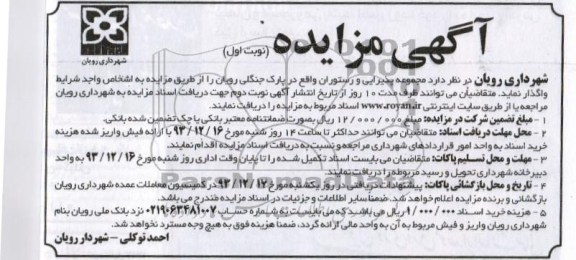 آگهی مزایده (نوبت اول)
شهرداری رویان
شهرداری رویان در نظر دارد مجموعه پذیرایی و رستوران واقع در پارک جنگلی رویان را از طریق مزایده به اشخاص واجد شرایط
واگذار نماید. متقاضیان می توانند ظرف مدت ۱۰ روز از تاریخ انتشار آگهی نوبت دوم جهت دریافت اسناد مزایده به شهرداری رویان
مراجعه یا از طریق سایت اینترنتی www.royan.ir اسناد مربوط به مزایده را دریافت نمایند.
۱ - مبلغ تضمین شرکت در مزایده: مبلغ ۱۲/۰۰۰/۰۰۰ ریال بصورت ضمانتنامه معتبر بانکی یا چک تضمین شده بانکی.
۲ - محل مهلت دریافت اسناد: متقاضیان می توانند حداکثر تا ساعت ۱۴ روز شنبه مورخ ۹۳/۱۲/۱۶ با ارائه فیش واریز شده هزینه
خرید اسناد به واحد امور قراردادهای شهرداری مراجعه و نسبت به دریافت اسناد مزایده اقدام نمایند.
۳ - مهلت و محل تسلیم پاکات: متقاضیان می بایست اسناد تکمیل شده را تا پایان وقت اداری روز شنبه مورخ ۹۳/۱۲/۱۶ به واحد
دبیرخانه شهرداری تحویل و رسید مربوطه را دریافت نمایند.
۴ - تاریخ و محل بازگشائی پاکات: پیشنهادات دریافتی در روز یکشنبه مورخ ۹۳/۱۲/۱۷ در کمیسیون معاملات عمده شهرداری رویان
بازگشائی و برنده مزایده اعلام خواهد شد. ضمنا سایر اطلاعات و جزئیات در اسناد مزایده مندرج می باشد.
۵ - هزینه خرید اسناد ۱/۰۰۰/۰۰۰ ریال می باشد که می بایست به شماره حساب ۰۲۱۹۰۶۳۴۸۱۰۰۷ نزد بانک ملی رویان بنام
شهرداری رویان واریز و فیش مربوط به آن به واحد مالی ارائه گردد، ضمنا هزینه فوق به هیچ وجه مسترد نخواهد شد.
احمد توکلی - شهردار رویان